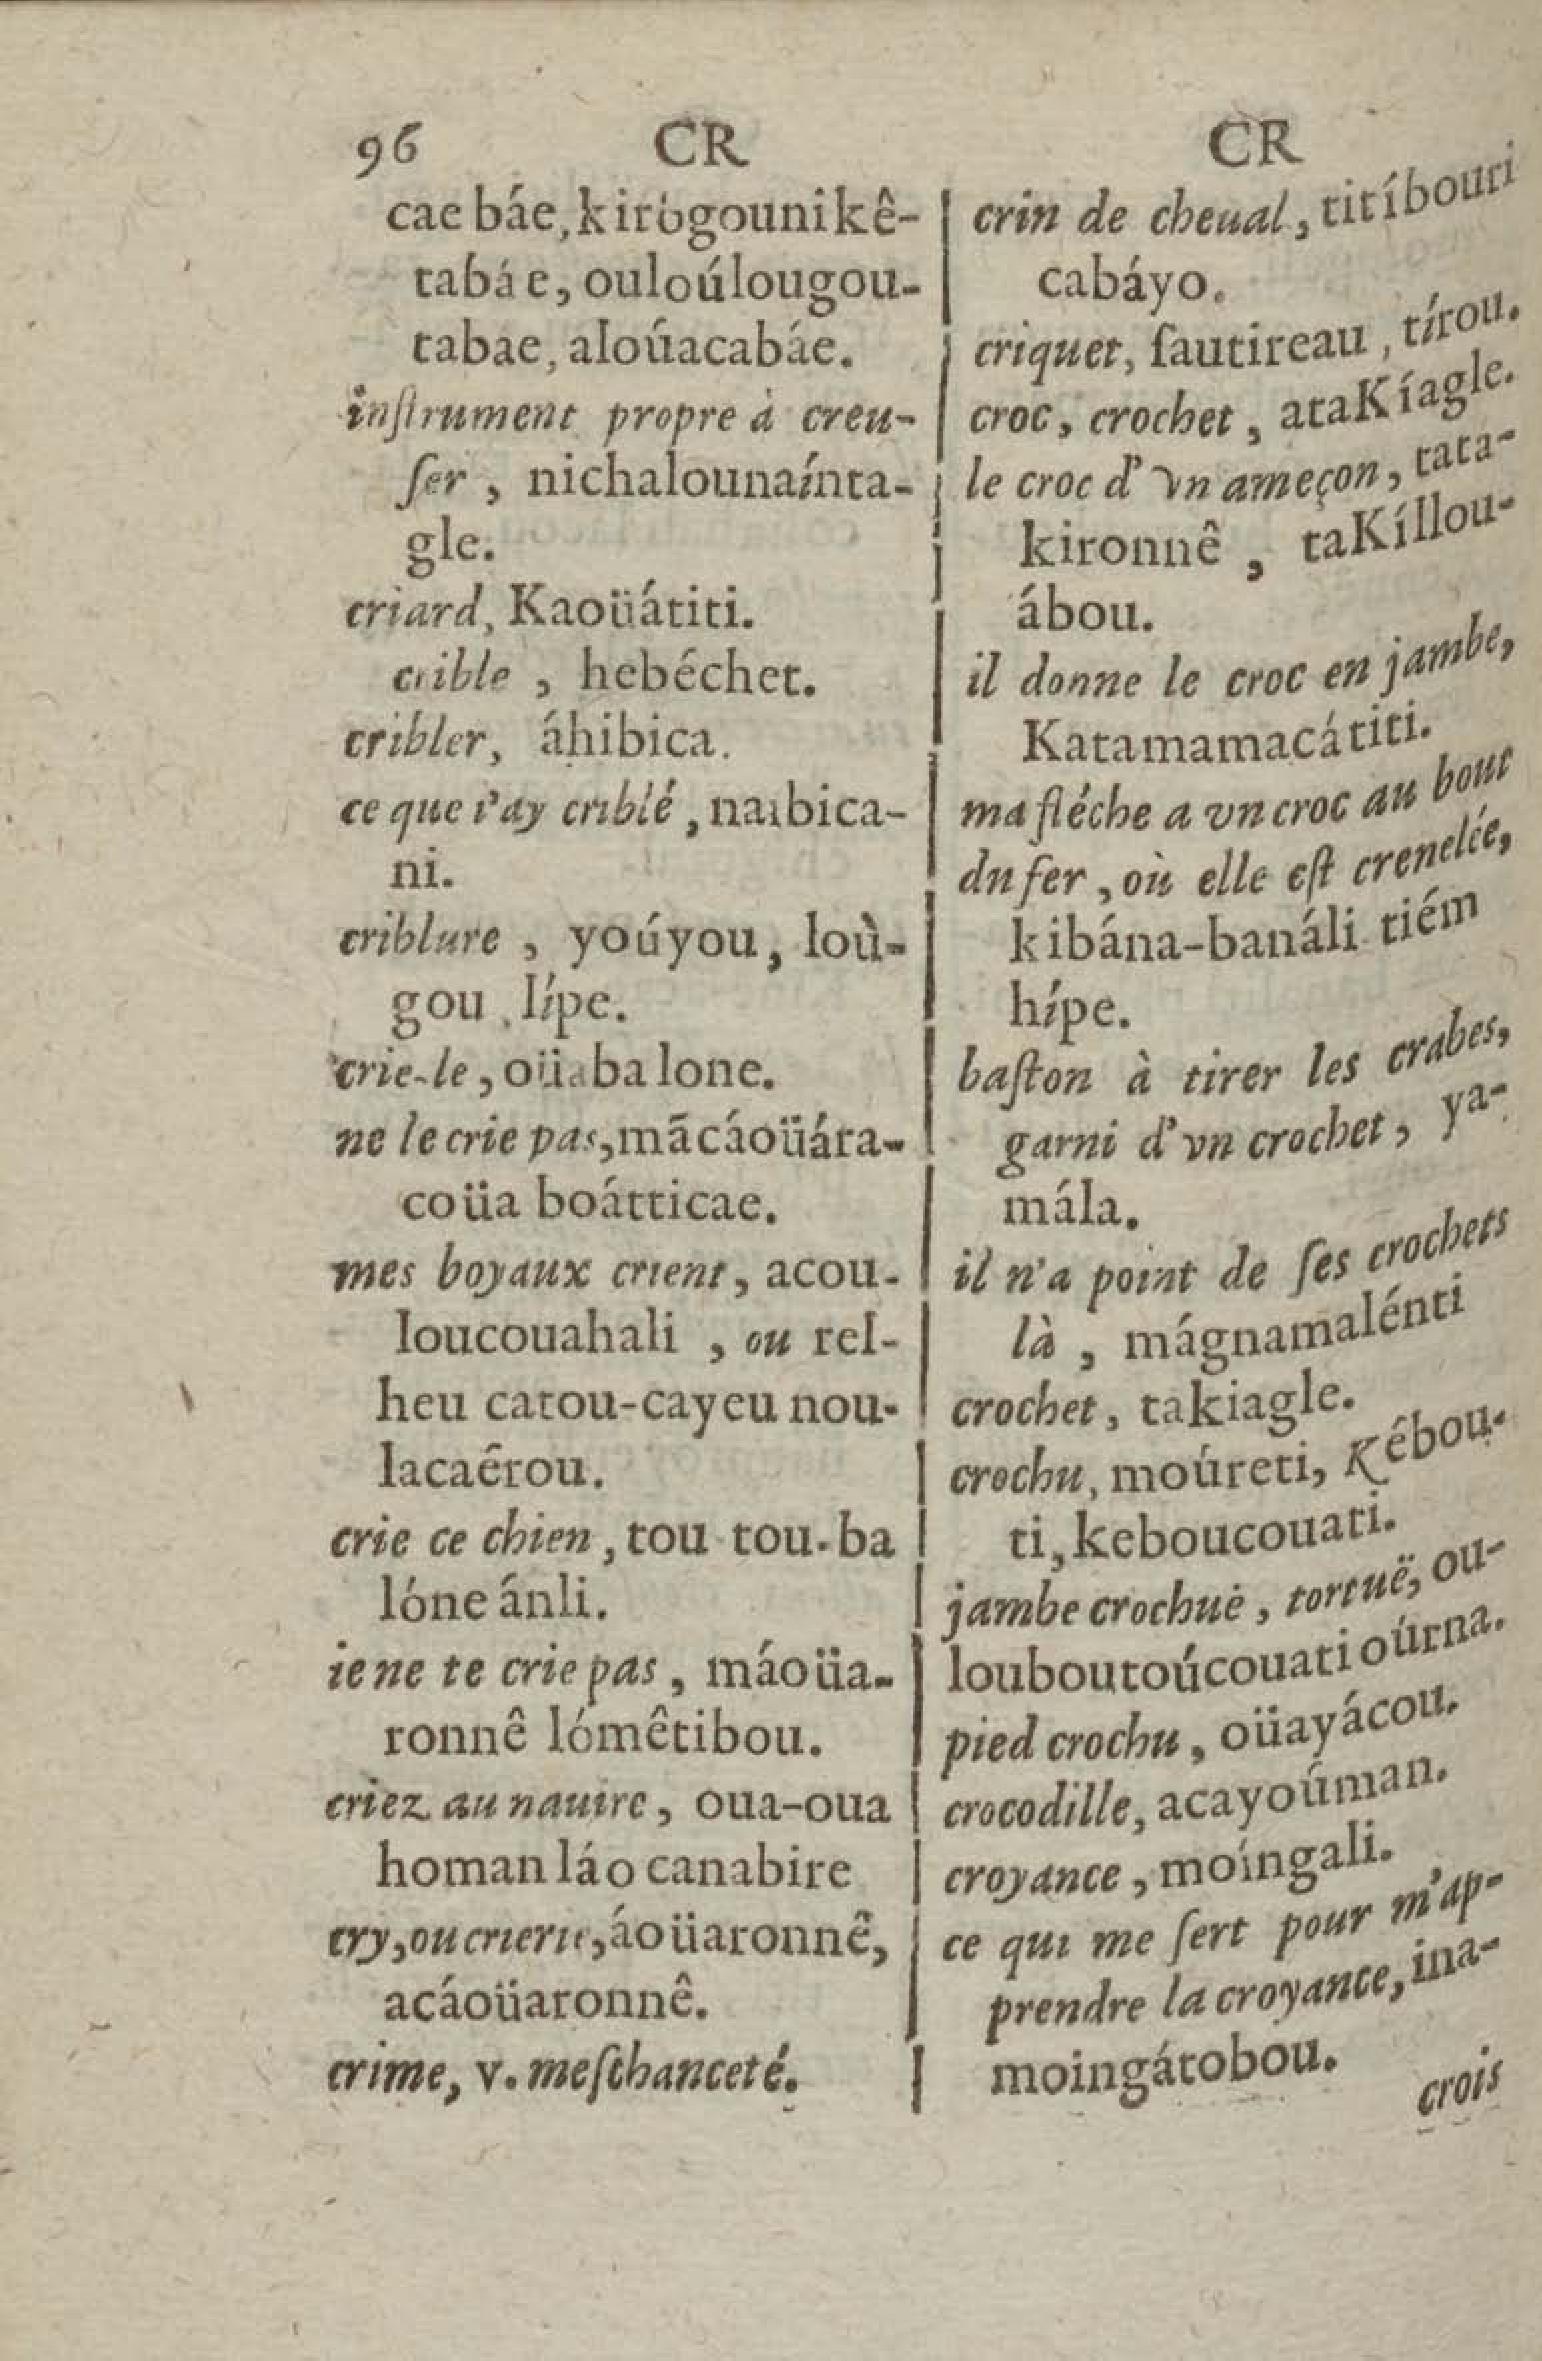 96 CR CR
cae báe, kirògouni kê-
tabáe, ouloúlougou-
tabae, aloúacabáe.
inſtrument propre à creu-
ſer, nichalounaínta-
gle.
criard, Kaoüátiti.
crible, hebéchet.
cribler, áhibica.
ce que i'ay criblé, naibica-
ni.
criblure, yoúyou, loù-
gou lípe.
crie-le, oüaba lone.
ne le crie pas, mãcáoüára-
coüa boátticae.
mes boyaux crient, acou-
loucouahali, ou rel-
heu catou-cayeu nou-
lacaêrou.
crie ce chien, tou tou-ba
lóne ánli.
ie ne te crie pas, máoüa-
ronnê lómêtibou.
criez au nauire, oua-oua
homan láo canabire
cry, ou crierie, áoüaronnê,
acáoüaronnê.
crime, v. meſchanceté.
crin de cheual, titíbouri
cabáyo.
criquet, ſautireau, tírou.
croc, crochet, ataKíagle.
le croc d'vn ameçon, tata-
kironnê, taKíllou-
ábou.
il donne le croc en jambe,
Katamamacátiti.
ma fléche a vn croc au bout
du fer, où elle eſt crenelée,
kibána-banáli tiém
hípe.
baſton à tirer les crabes,
garni d'vn crochet, ya-
mála.
il n'a point de ſes crochets
là, mágnamalénti
crochet, takiagle.
crochu, moúreti, Kébou-
ti, keboucouati.
jambe crochuë, tortuë, ou-
louboutoúcouati oúrna.
pied crochu, oüayácou.
crocodille, acayoúman.
croyance, moíngali.
ce qui me ſert pour m'ap-
prendre la croyance, ina-
moingátobou.
crois